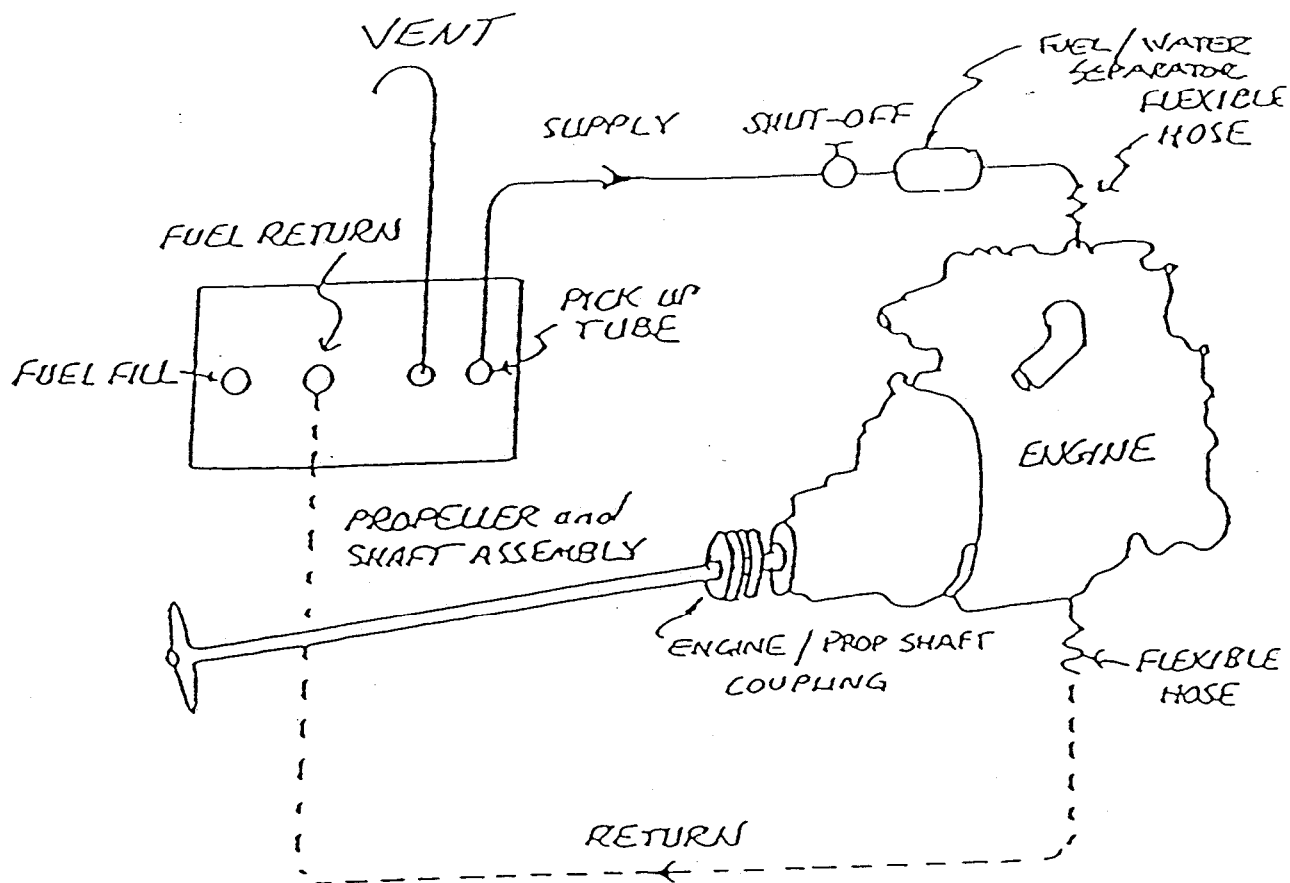 VENT
FUEL/WATER
SEPARATOR
FLEXIBLE
HOSE
SUPPLY
SHUT-OFF
FUEL RETURN
PICK UP
TUBE
FUEL FILL
ENGINE
PROPELLER and
SHAFT ASSEMBLY
ENGINE / PROP SHAFT
COUPLING
FLEXIBLE
HOSE
RETURN